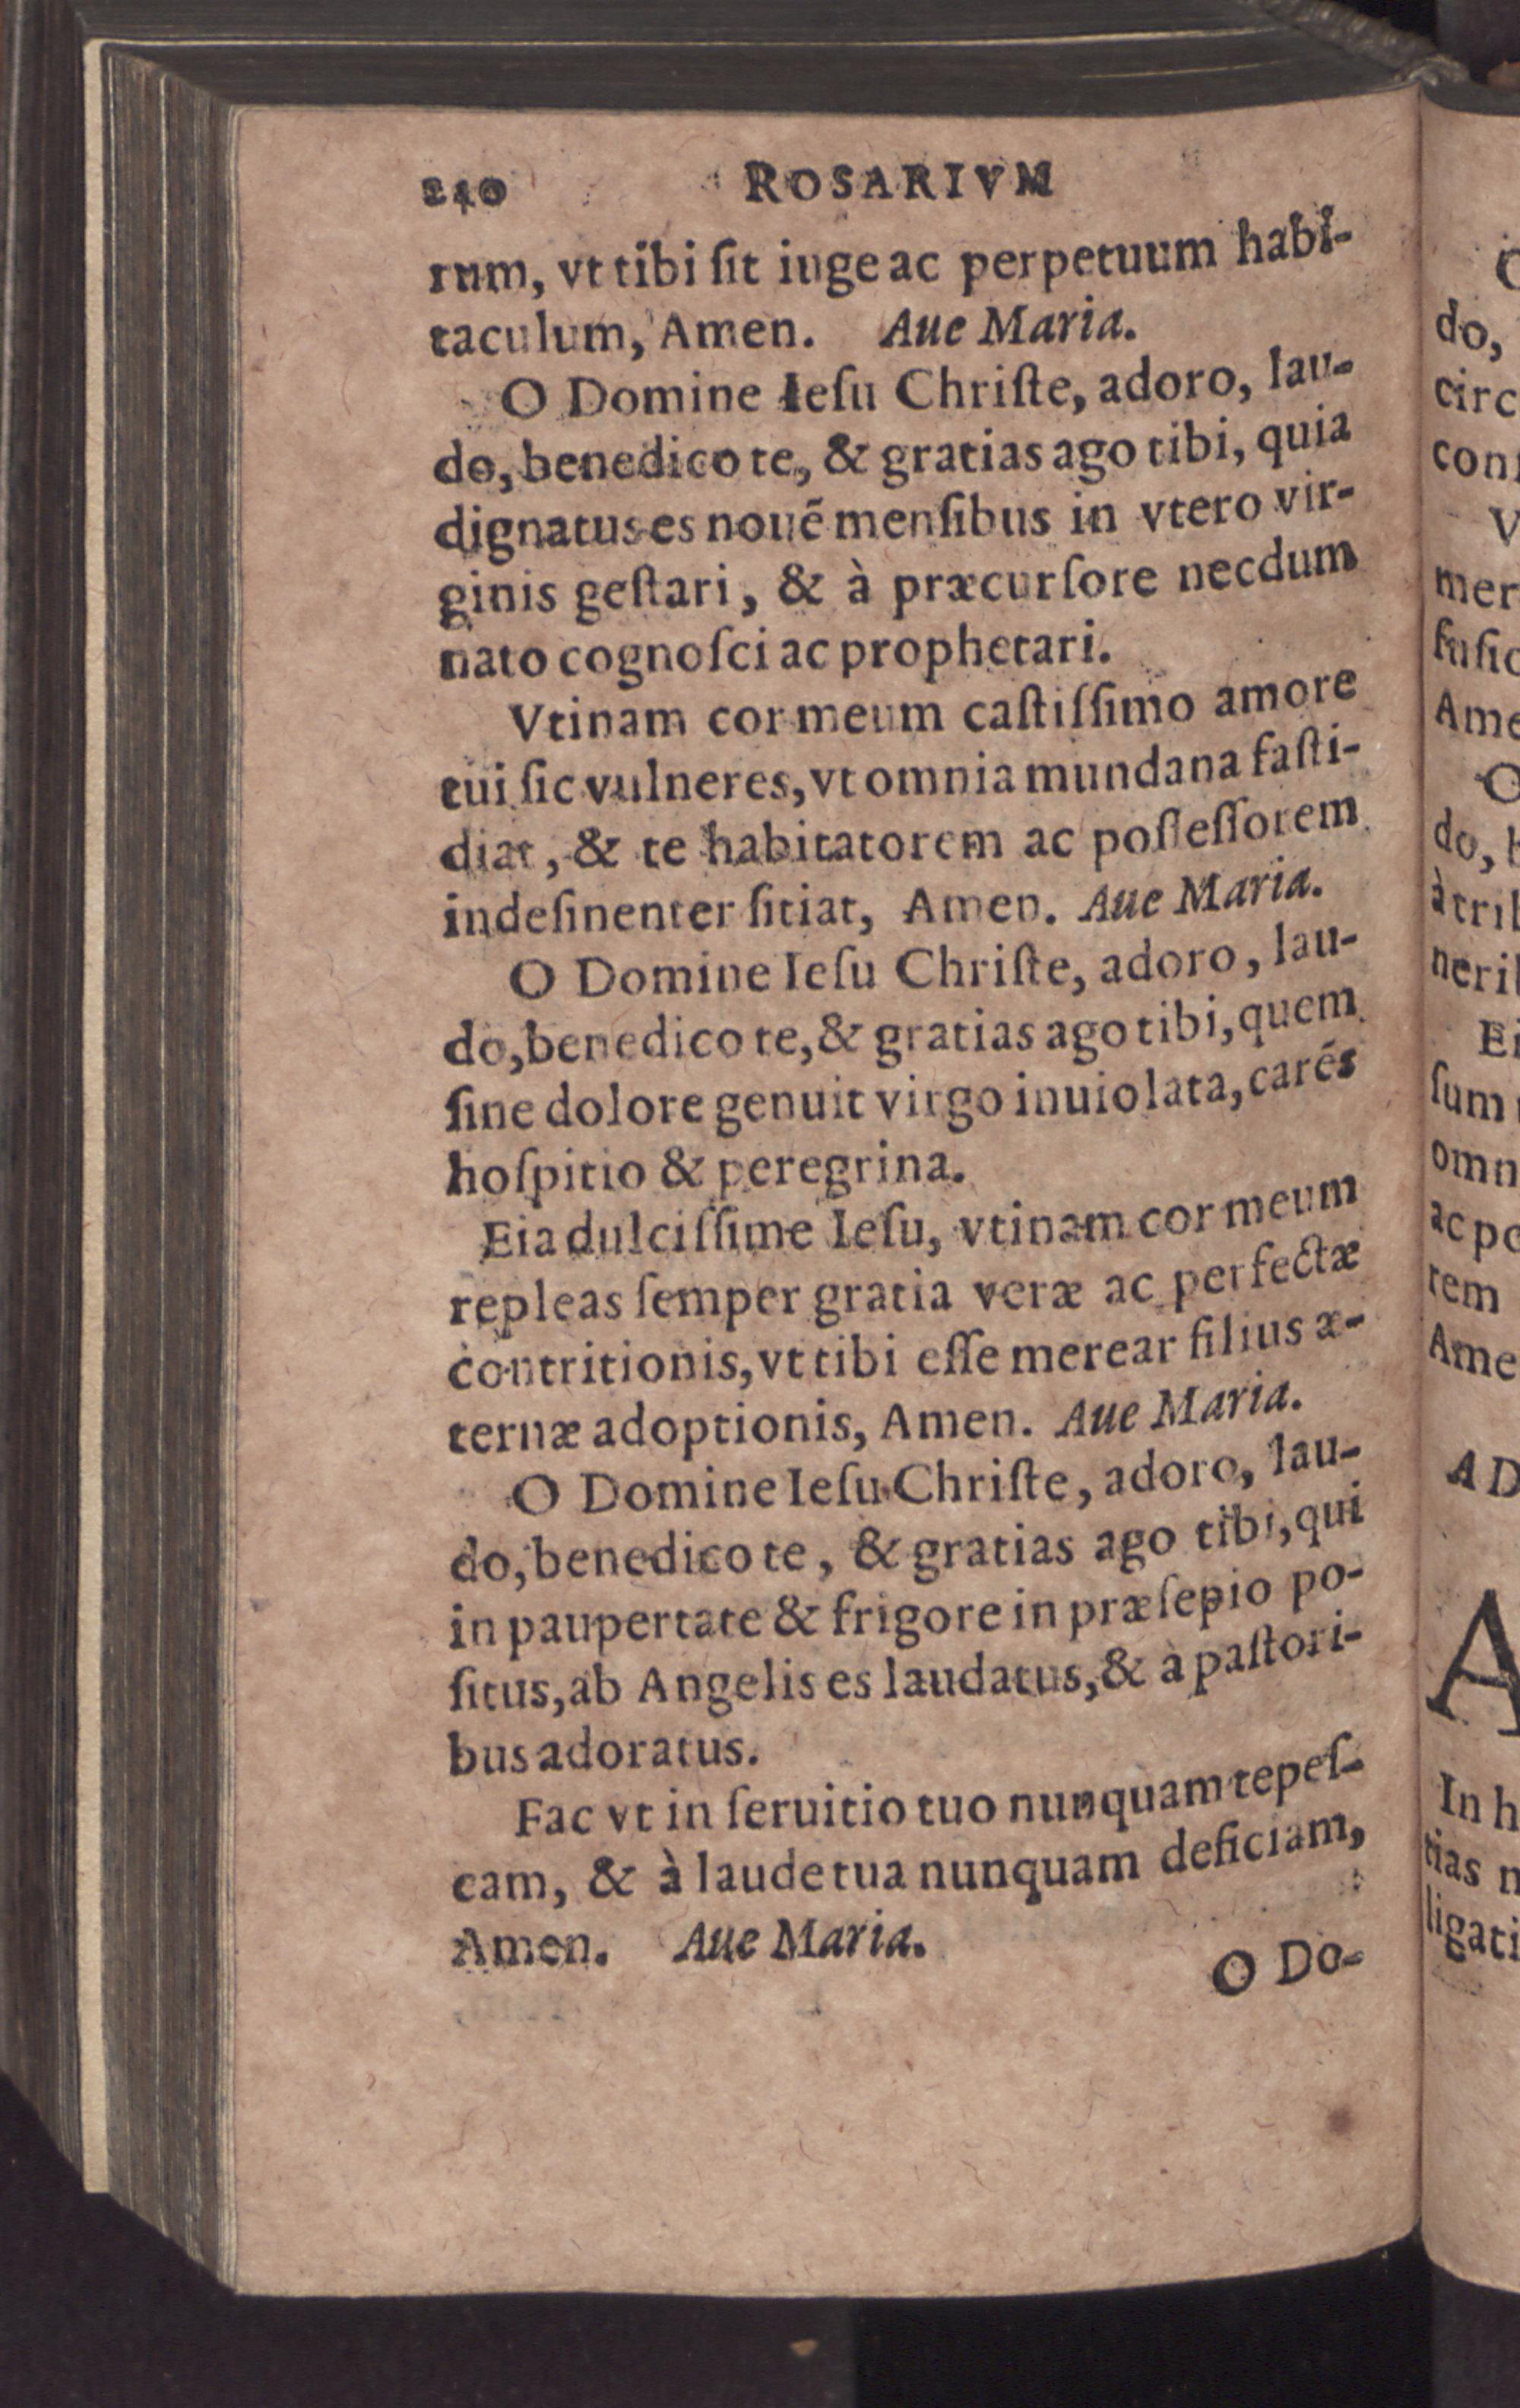 240 ROSARIVM
rum, vt tibi ſit iuge ac perpetuum habi-
taculum, Amen. Aue Maria.
O Domine Ieſu Chriſte, adoro, lau-
do, benedico te, & gratias ago tibi, quia
dignatus es nouē menſibus in vtero vir-
ginis geſtari, & à præcurſore necdum
nato cognoſci ac prophetari.
Vtinam cor meum caſtiſſimo amore
tui ſic vulneres, vt omnia mundana faſti-
diat, & te habitatorem ac poſſeſſorem
indeſinenter ſitiat, Amen. Aue Maria.
O Domine Ieſu Chriſte, adoro, lau-
do, benedico te, & gratias ago tibi, quem
ſine dolore genuit virgo inuiolata, carés
hoſpitio & peregrina.
Eia dulciſſime Ieſu, vtinam cor meum
repleas ſemper gratia veræ ac perfectæ
contritionis, vt tibi eſſe merear filius æ-
ternæ adoptionis, Amen. Aue Maria.
O Domine Ieſu Chriſte, adoro, lau-
do, benedico te, & gratias ago tibi, qui
in paupertate & frigore in præſepio po-
ſitus, ab Angelis es laudatus, & à paſtori-
bus adoratus.
Fac vt in ſeruitio tuo nunquam tepeſ-
cam, & à laude tua nunquam deficiam,
Amen. Aue Maria.
O Do-
do,
circ
V
mer
Ame
O
do,
neri
Ei
ſum
omn
ac po
rem
Ame
AD
A
In h
tias
ligati